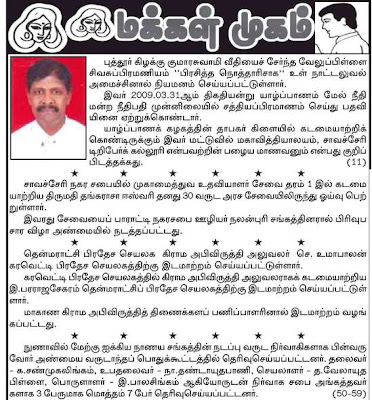 மக்கள் முகம்
புத்தூர் கிழக்கு குமாரசுவாமி வீதியைச் சேர்ந்த வேலுப்பிள்ளை
சிவசுப்பிரமணியம் "பிரசித்த நொத்தாரிசாக" உள் நாட்டலுவல்
அமைச்சினால் நியமனம் செய்யப்பட்டுள்ளார்.
இவர் 2009.03.31ஆம் திகதியன்று யாழ்ப்பாணம் மேல் நீதி
மன்ற நீதிபதி முன்னிலையில் சத்தியப்பிரமாணம் செய்து பதவி
யினை ஏற்றுக்கொண்டார்.
யாழ்ப்பாணக் கழகத்தின் தாபகர் கிளையில் கடமையாற்றிக்
கொண்டிருக்கும் இவர் மட்டுவில் மகாவித்தியாலயம், சாவச்சேரி
டிறிபேர்க் கல்லூரி என்பவற்றின் பழைய மாணவனும் என்பது குறிப்
பிடத்தக்கது. (11)
சாவச்சேரி நகர சபையில் முகாமைத்துவ உதவியாளர் சேவை தரம் 1 இல் கடமை
யாற்றிய திருமதி தங்கராசா ஈஸ்வரி தனது 30 வருட அரச சேவையிலிருந்து ஓய்வு பெற்
றுள்ளார்.
இவரது சேவையைப் பாராட்டி நகரசபை ஊழியர் நலன்புரி சங்கத்தினரால் பிரிவுப
சார விழா அண்மையில் நடத்தப்பட்டது.
தென்மராட்சிப் பிரதேச செயலக கிராம அபிவிருத்தி அலுவலர் செ. உமாபாலன்
கரவெட்டி பிரதேச செயலகத்திற்கு இடமாற்றம் செய்யப்பட்டுள்ளார்.
கரவெட்டி பிரதேச செயலகத்தில் கிராம அபிவிருத்தி அலுவலராகக் கடமையாற்றிய
இ.பரராஜசேகரம் தென்மராட்சிப் பிரதேச செயலகத்திற்கு இடமாற்றம் செய்யப்பட்டுள்
ளார்.
மாகாண கிராம அபிவிருத்தித் திணைக்களப் பணிப்பாளரினால் இடமாற்றம் வழங்
கப்பட்டது.
நுணாவில் மேற்கு ஐக்கிய நாணய சங்கத்தின் நடப்பு வருட நிர்வாகிகளாக பின்வரு
வோர் அண்மைய வருடாந்தப் பொதுக்கூட்டத்தில் தெரிவுசெய்யப்பட்டனர். தலைவர்
- க.சண்முகலிங்கம், உபதலைவர் - நா.தண்டாயுதபாணி, செயலாளர் - த.வேலாயுத
பிள்ளை, பொருளாளர் - இ.பாலசிங்கம் ஆகியோருடன் நிர்வாக சபை அங்கத்தவர்
களாக 3 பேருமாக மொத்தம் 7 பேர் தெரிவுசெய்யப்பட்டனர். (50-59)